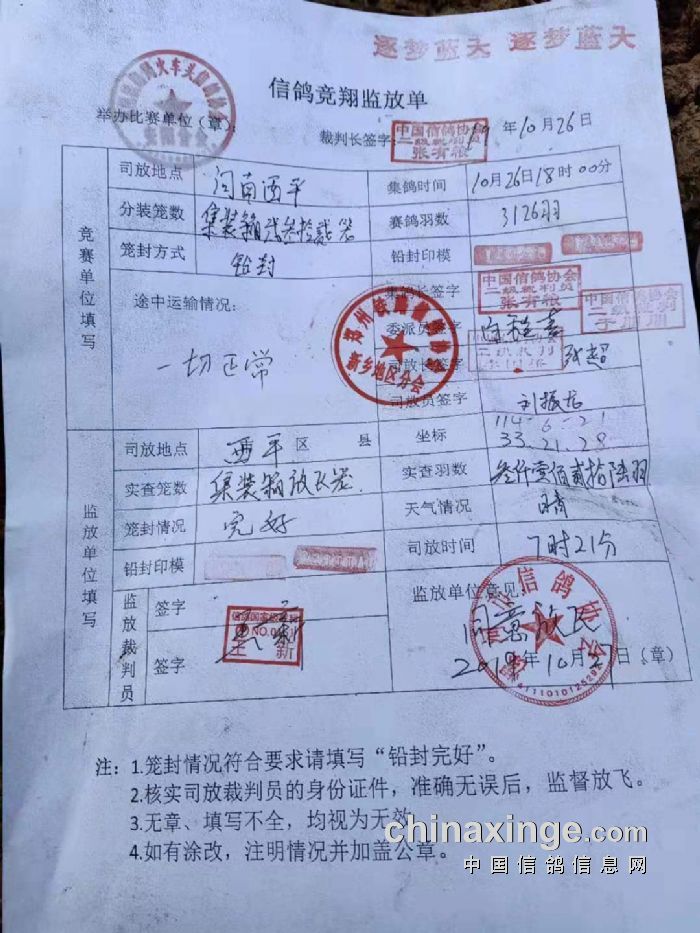 逐梦蓝天 逐梦蓝天
信鸽竞翔监放单
举办比赛单位（章）： 裁判长签字： 19 年10月26日
中国信鸽协会
二级裁判员
张有粮
竞赛单位填写
司放地点 河南西平 集鸽时间 10月26日18时00分
分装笼数 赛鸽羽数 3126羽
笼封方式 铅封 铅封印模
途中运输情况： 集鸽长签字
中国信鸽协会
二级裁判员
张有粮
中国信鸽协会
委派员签字
一切正常
司放长签字 张超
新乡地区分会
司放员签字 刘振店
监放单位填写
司放地点 西平 区 县 坐标 114-6-21
33.21.28
实查笼数 集装箱放飞笼 实查羽数 叁仟壹佰贰拾陆羽
笼封情况 完好 天气情况 晴
铅封印模 司放时间 7时21分
监放裁判员 签字 监放单位意见：
同意放飞
签字 2019年10月27日（章）
注：1.笼封情况符合要求请填写“铅封完好”。
2.核实司放裁判员的身份证件，准确无误后，监督放飞。
3.无章、填写不全，均视为无效。
4.如有涂改，注明情况并加盖公章。
chinaxinge.com
中国信鸽信息网